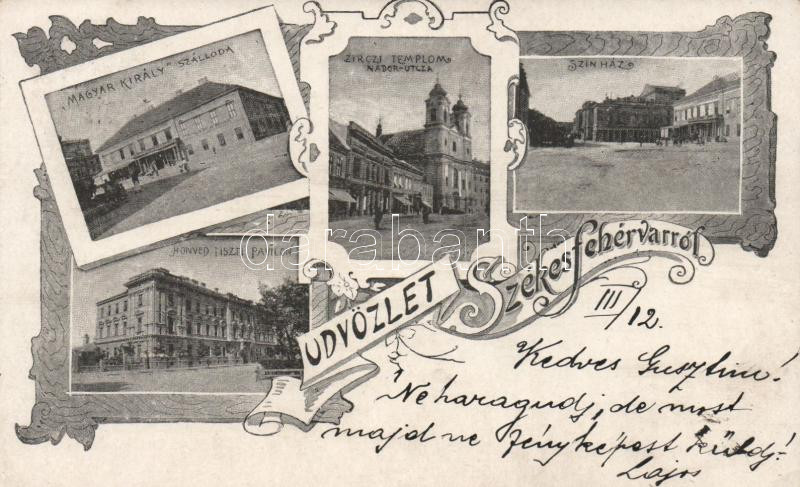 "MAGYAR KIRÁLY" SZÁLLODA
ZIRCZI TEMPLOM
NÁDOR-UTCZA
SZINHÁZ
HONVÉD TISZTI PAVILON
ÜDVÖZLET
Székesfehérvárról
darabanth.com
III/12.
Kedves Gusztim!
Ne haragudj, de most
majd ne fényképest küldj!
Lajos